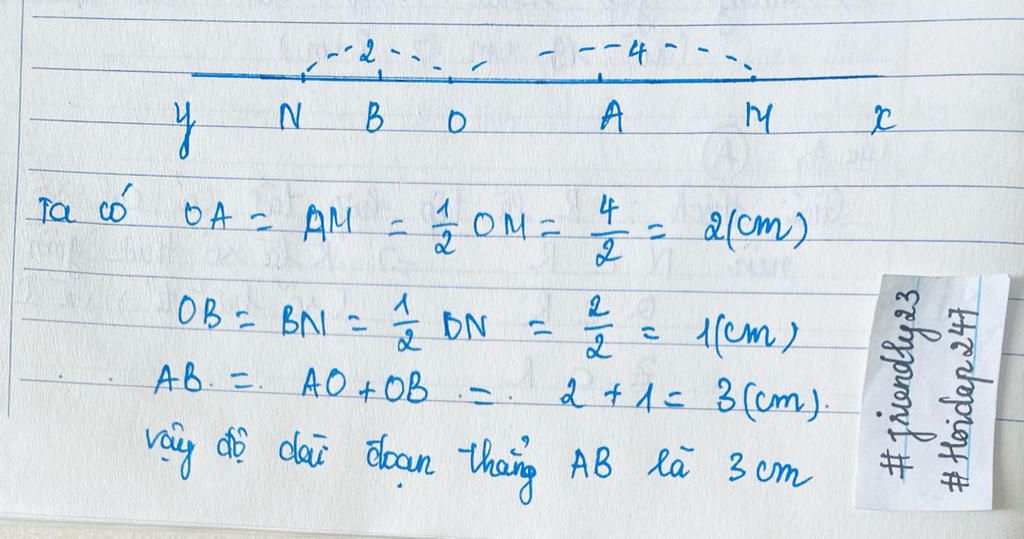 2 4
y N B O A M x
Ta có OA = AM = 1/2 OM = 4/2 = 2(cm)
OB = BN = 1/2 ON = 2/2 = 1(cm)
AB = AO + OB = 2 + 1 = 3(cm).
vậy độ dài đoạn thẳng AB là 3 cm
#friendly23
#Hoidap247